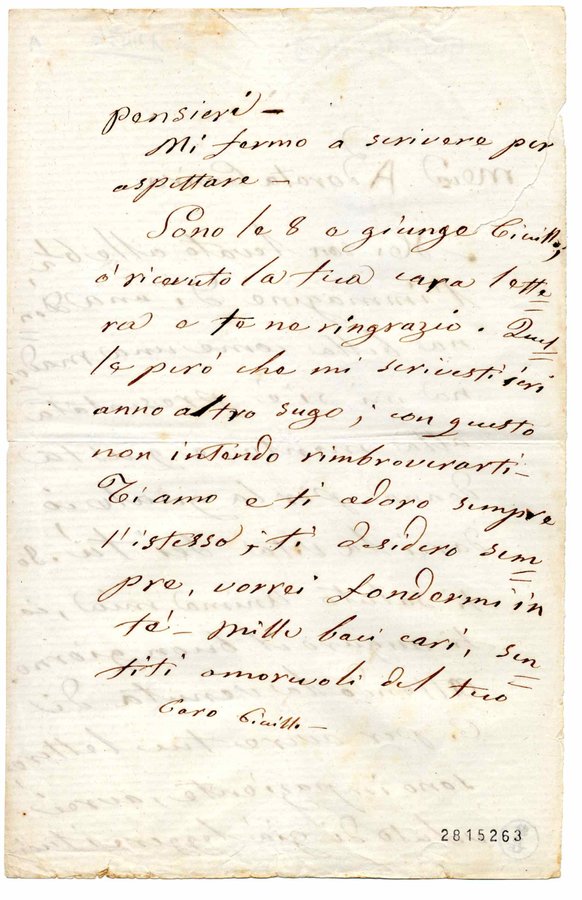 pensieri -
Mi fermo a scrivere per
aspettare -
Sono le 8 e giunge Ciccillo,
ó ricevuto la tua cara lette=
ra e te ne ringrazio. Quel=
le peró che mi scrivesti ieri
anno altro sugo; con questo
non intendo rimbroverarti -
Ti amo e ti adoro sempre
l'istesso, ti desidero sem=
pre, vorrei fondermi in
té - Mille baci cari, sen=
titi amorevoli del tuo
Caro Ciccillo -
2815263